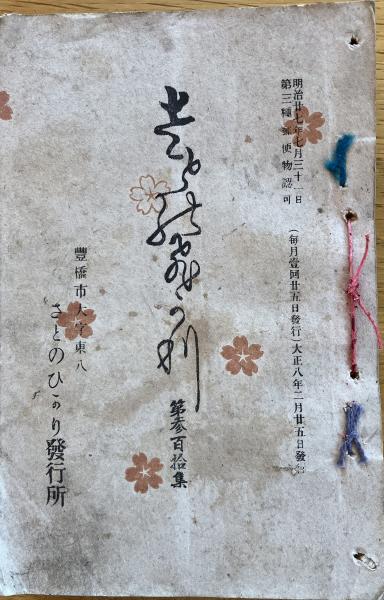 明治廿七年七月三十一日
第三種郵便物認可
(毎月壹回廿五日發行)大正八年二月廿五日發行
第参百拾集
豐橋市大字東八
さとのひかり發行所